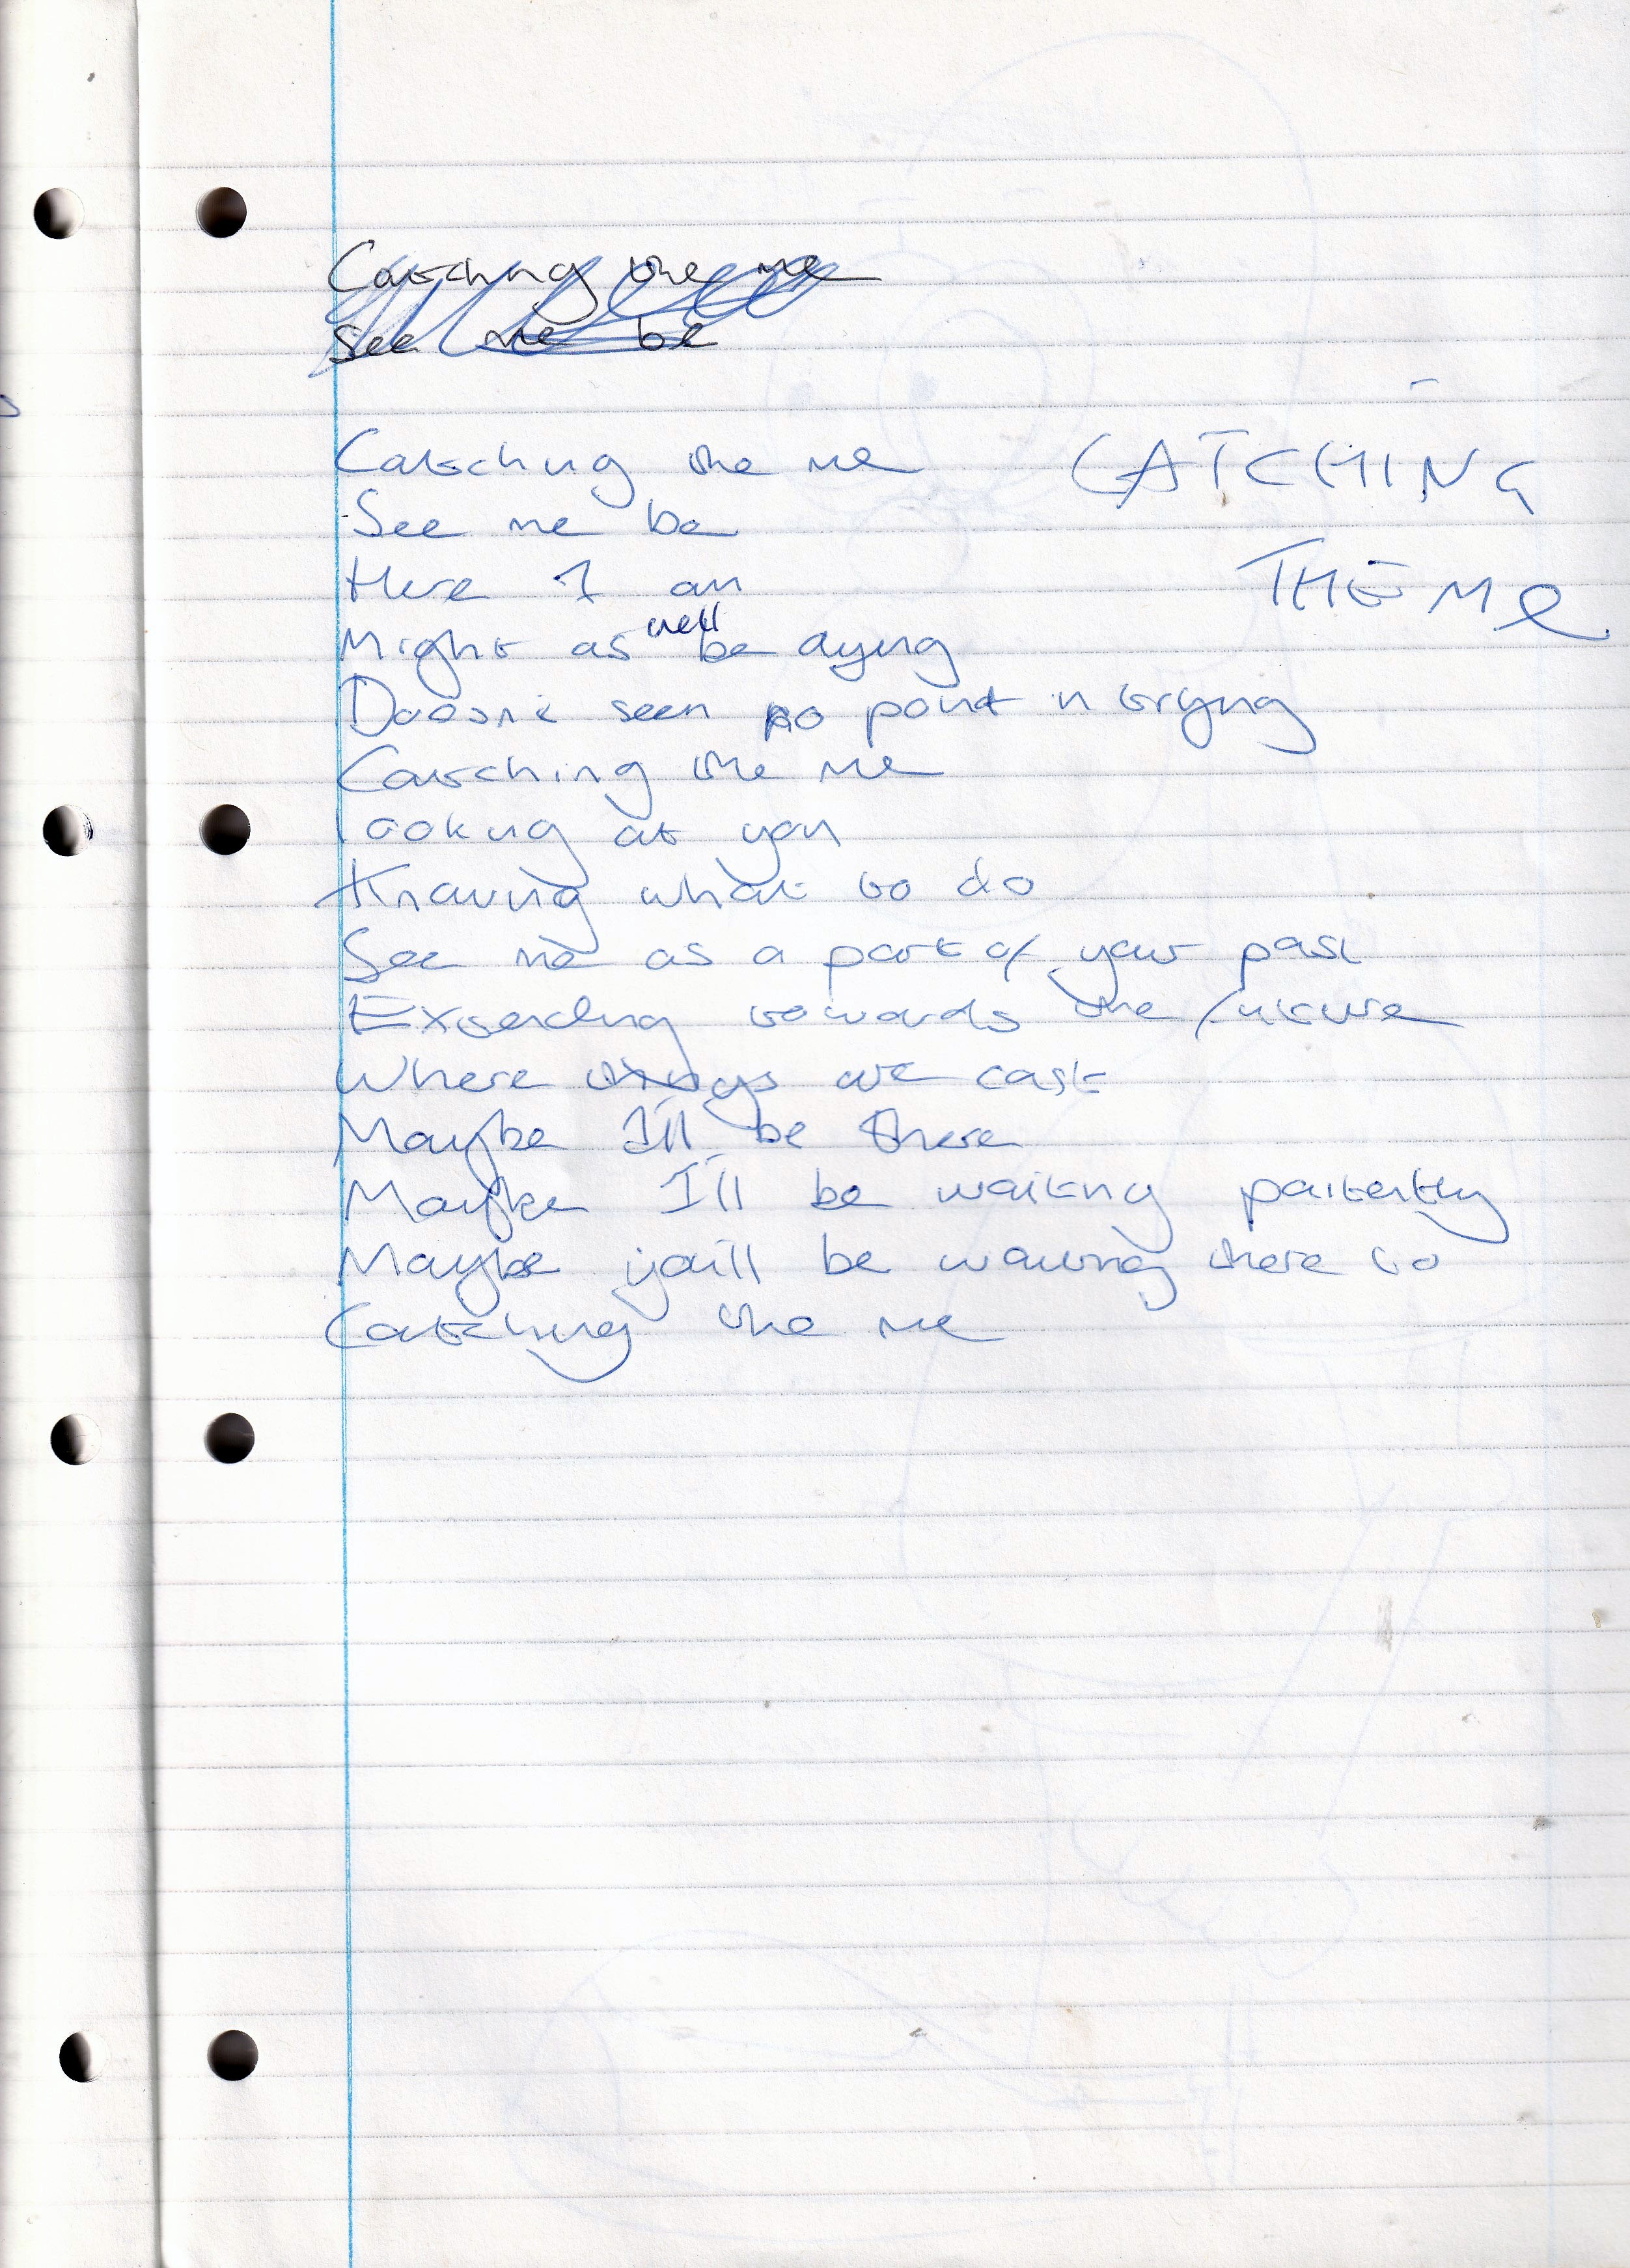 Catching the me
See me be
Catching the me
CATCHING
THE Me
See me be
Here I am
Might as well be dying
Doesn't seem no point in trying
Catching the me
Looking at you
Knowing what to do
See me as a part of your past
Extending towards the future
Where things are cast
Maybe I'll be there
Maybe I'll be waiting paitently
Maybe you'll be waiting there to
Catching the me